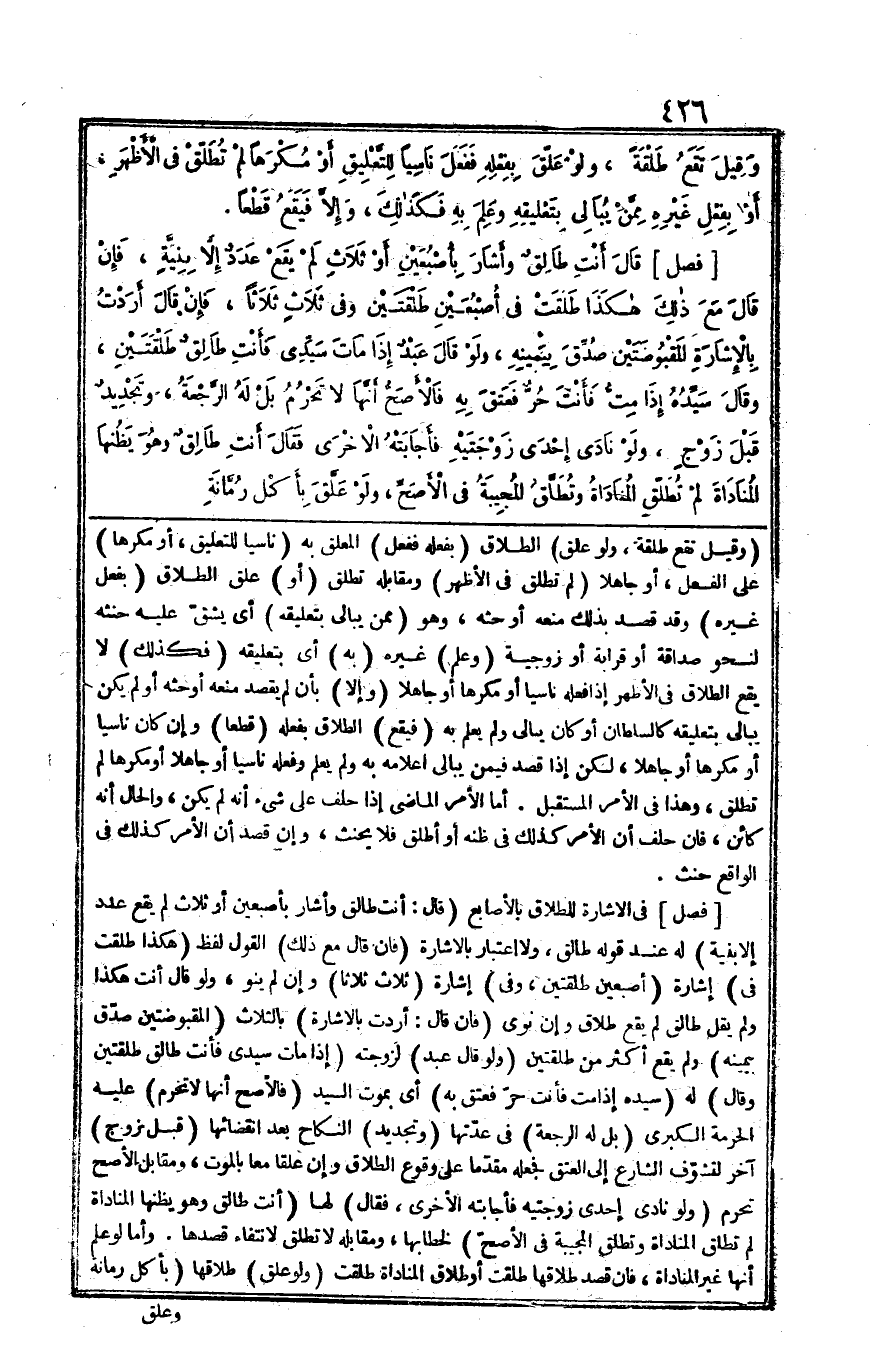 ٤٢٦
وَقِيلَ تَقَعُ طَلْقَةٌ ، ولو عَلَّقَ بِفِعْلِهِ فَفَعَلَ نَاسِياً لِلتَّعْلِيقِ أَوْ مُكْرَهاً لَمْ تُطَلَّقْ فى الْأَظْهَرِ ،
أَوْ بِفِعْلِ غَيْرِهِ مِمَّنْ يُبَالِى بِتَعْلِيقِهِ وعَلِمَ بِهِ فَكَذٰلِكَ ، وَإِلاَّ فَيَقَعُ قَطْعاً .
[ فصل ] قَالَ أَنْتِ طَالِقٌ وأَشَارَ بِأُصْبُعَيْنِ أَوْ ثَلَاثٍ لَمْ يَقَعْ عَدَدٌ إِلَّا بِنِيَّةٍ ، فَإِنْ
قَالَ مَعَ ذٰلِكَ هٰكَذَا طَلَقَتْ فى أُصْبُعَيْنِ طَلْقَتَيْنِ وفى ثَلَاثٍ ثَلَاثاً ، فَإِنْ قَالَ أَرَدْتُ
بِالْإِشَارَةِ الْمَقْبُوضَتَيْنِ صُدِّقَ بِيَمِينِهِ ، ولَوْ قَالَ عَبْدٌ إِذَا مَاتَ سَيِّدِى فَأَنْتِ طَالِقٌ طَلْقَتَيْنِ ،
وقَالَ سَيِّدُهُ إِذَا مِتُّ فَأَنْتَ حُرٌّ فَعَتَقَ بِهِ فَالْأَصَحُّ أَنَّهَا لَا تَحْرُمُ بَلْ لَهُ الرَّجْعَةُ ، وتَجْدِيدٌ
قَبْلَ زَوْجٍ ، ولَوْ نَادَى إِحْدَى زَوْجَتَيْهِ فَأَجَابَتْهُ الْأُخْرَى فَقَالَ أَنتِ طَالِقٌ وهُوَ يَظُنُّهَا
الْمُنَادَاةَ لَمْ تُطَلَّقِ الْمُنَادَاةُ وتُطَلَّقُ الْمُجِيبَةُ فى الْأَصَحِّ ، ولَوْ عَلَّقَ بِأَكْلِ رُمَّانَةٍ
( وقيل تقع طلقة ، ولو علق) الطلاق ( بفعله ففعل ) المعلق به ( ناسيا للتعليق ، أو مكرها )
على الفعل ، أو جاهلا ( لم تطلق فى الأظهر ) ومقابله تطلق ( أو ) علق الطلاق ( بفعل
غيره ) وقد قصد بذلك منعه أو حثه ، وهو ( ممن يبالى بتعليقه ) أى يشق عليه حنثه
لنحو صداقة أو قرابة أو زوجية ( وعلم ) غيره ( به ) أى بتعليقه ( فكذلك ) لا
يقع الطلاق فى الأظهر إذا فعله ناسيا أو مكرها أو جاهلا ( وإلا ) بأن لم يقصد منعه أو حثه أو لم يكن
يبالى بتعليقه كالسلطان أو كان يبالى ولم يعلم به ( فيقع ) الطلاق بفعله ( قطعا ) وإن كان ناسيا
أو مكرها أو جاهلا ، لكن إذا قصد فيمن يبالى اعلامه به ولم يعلم وفعله ناسيا أو جاهلا أو مكرها لم
تطلق ، وهذا فى الأمر المستقبل . أما الأمر الماضى إذا حلف على شىء أنه لم يكن ، والحال أنه
كائن ، فان حلف أن الأمر كذلك فى ظنه أو أطلق فلا يحنث ، وإن قصد أن الأمر كذلك فى
الواقع حنث .
[ فصل ] فى الاشارة للطلاق بالأصابع ( قال : أنت طالق وأشار بأصبعين أو ثلاث لم يقع عدد
إلا بنية ) له عند قوله طالق ، ولا اعتبار بالاشارة ( فان قال مع ذلك ) القول لفظ ( هكذا طلقت
فى ) إشارة ( أصبعين طلقتين ، وفى ) إشارة ( ثلاث ثلاثا ) وإن لم ينو ، ولو قال أنت هكذا
ولم يقل طالق لم يقع طلاق وإن نوى ( فان قال : أردت بالاشارة ) بالثلاث ( المقبوضتين صدّق
بيمينه ) ولم يقع أكثر من طلقتين ( ولو قال عبد ) لزوجته ( إذا مات سيدى فأنت طالق طلقتين
وقال ) له ( سيده إذا مت فأنت حرّ فعتق به ) أى بموت السيد ( فالأصح أنها لا تحرم ) عليه
الحرمة الكبرى ( بل له الرجعة ) فى عدّتها ( وتجديد ) النكاح بعد انقضائها ( قبل زوج )
آخر لتشوّف الشارع إلى العتق فجعله مقدّما على وقوع الطلاق وإن علقا معا بالموت ، ومقابل الأصح
تحرم ( ولو نادى إحدى زوجتيه فأجابته الأخرى ، فقال ) لها ( أنت طالق وهو يظنها المناداة
لم تطلق المناداة وتطلق المجيبة فى الأصحّ ) لخطابها ، ومقابله لا تطلق لانتفاء قصدها . وأما لو علم
أنها غير المناداة ، فان قصد طلاقها طلقت أو طلاق المناداة طلقت ( ولو علق ) طلاقها ( بأكل رمانة
وعلق